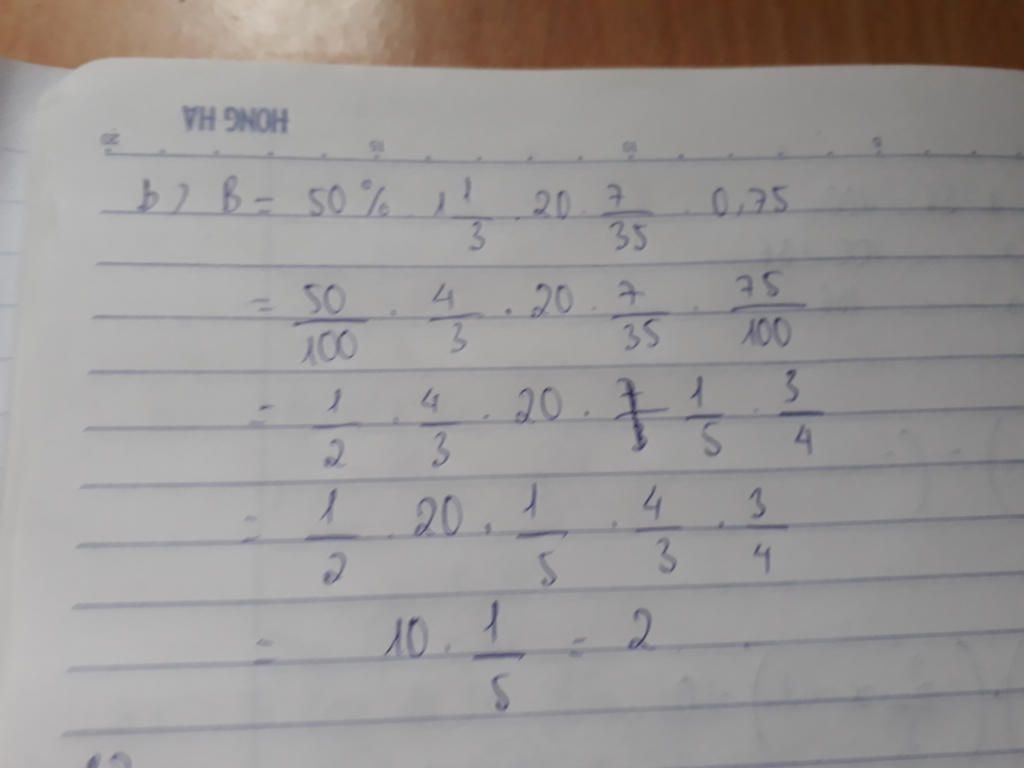 HONG HA
20 15 10 5
b) B = 50% . 1 1/3 . 20 . 7/35 . 0,75
= 50/100 . 4/3 . 20 . 7/35 . 75/100
= 1/2 . 4/3 . 20 . 1/5 . 3/4
= 1/2 . 20 . 1/5 . 4/3 . 3/4
= 10 . 1/5 = 2